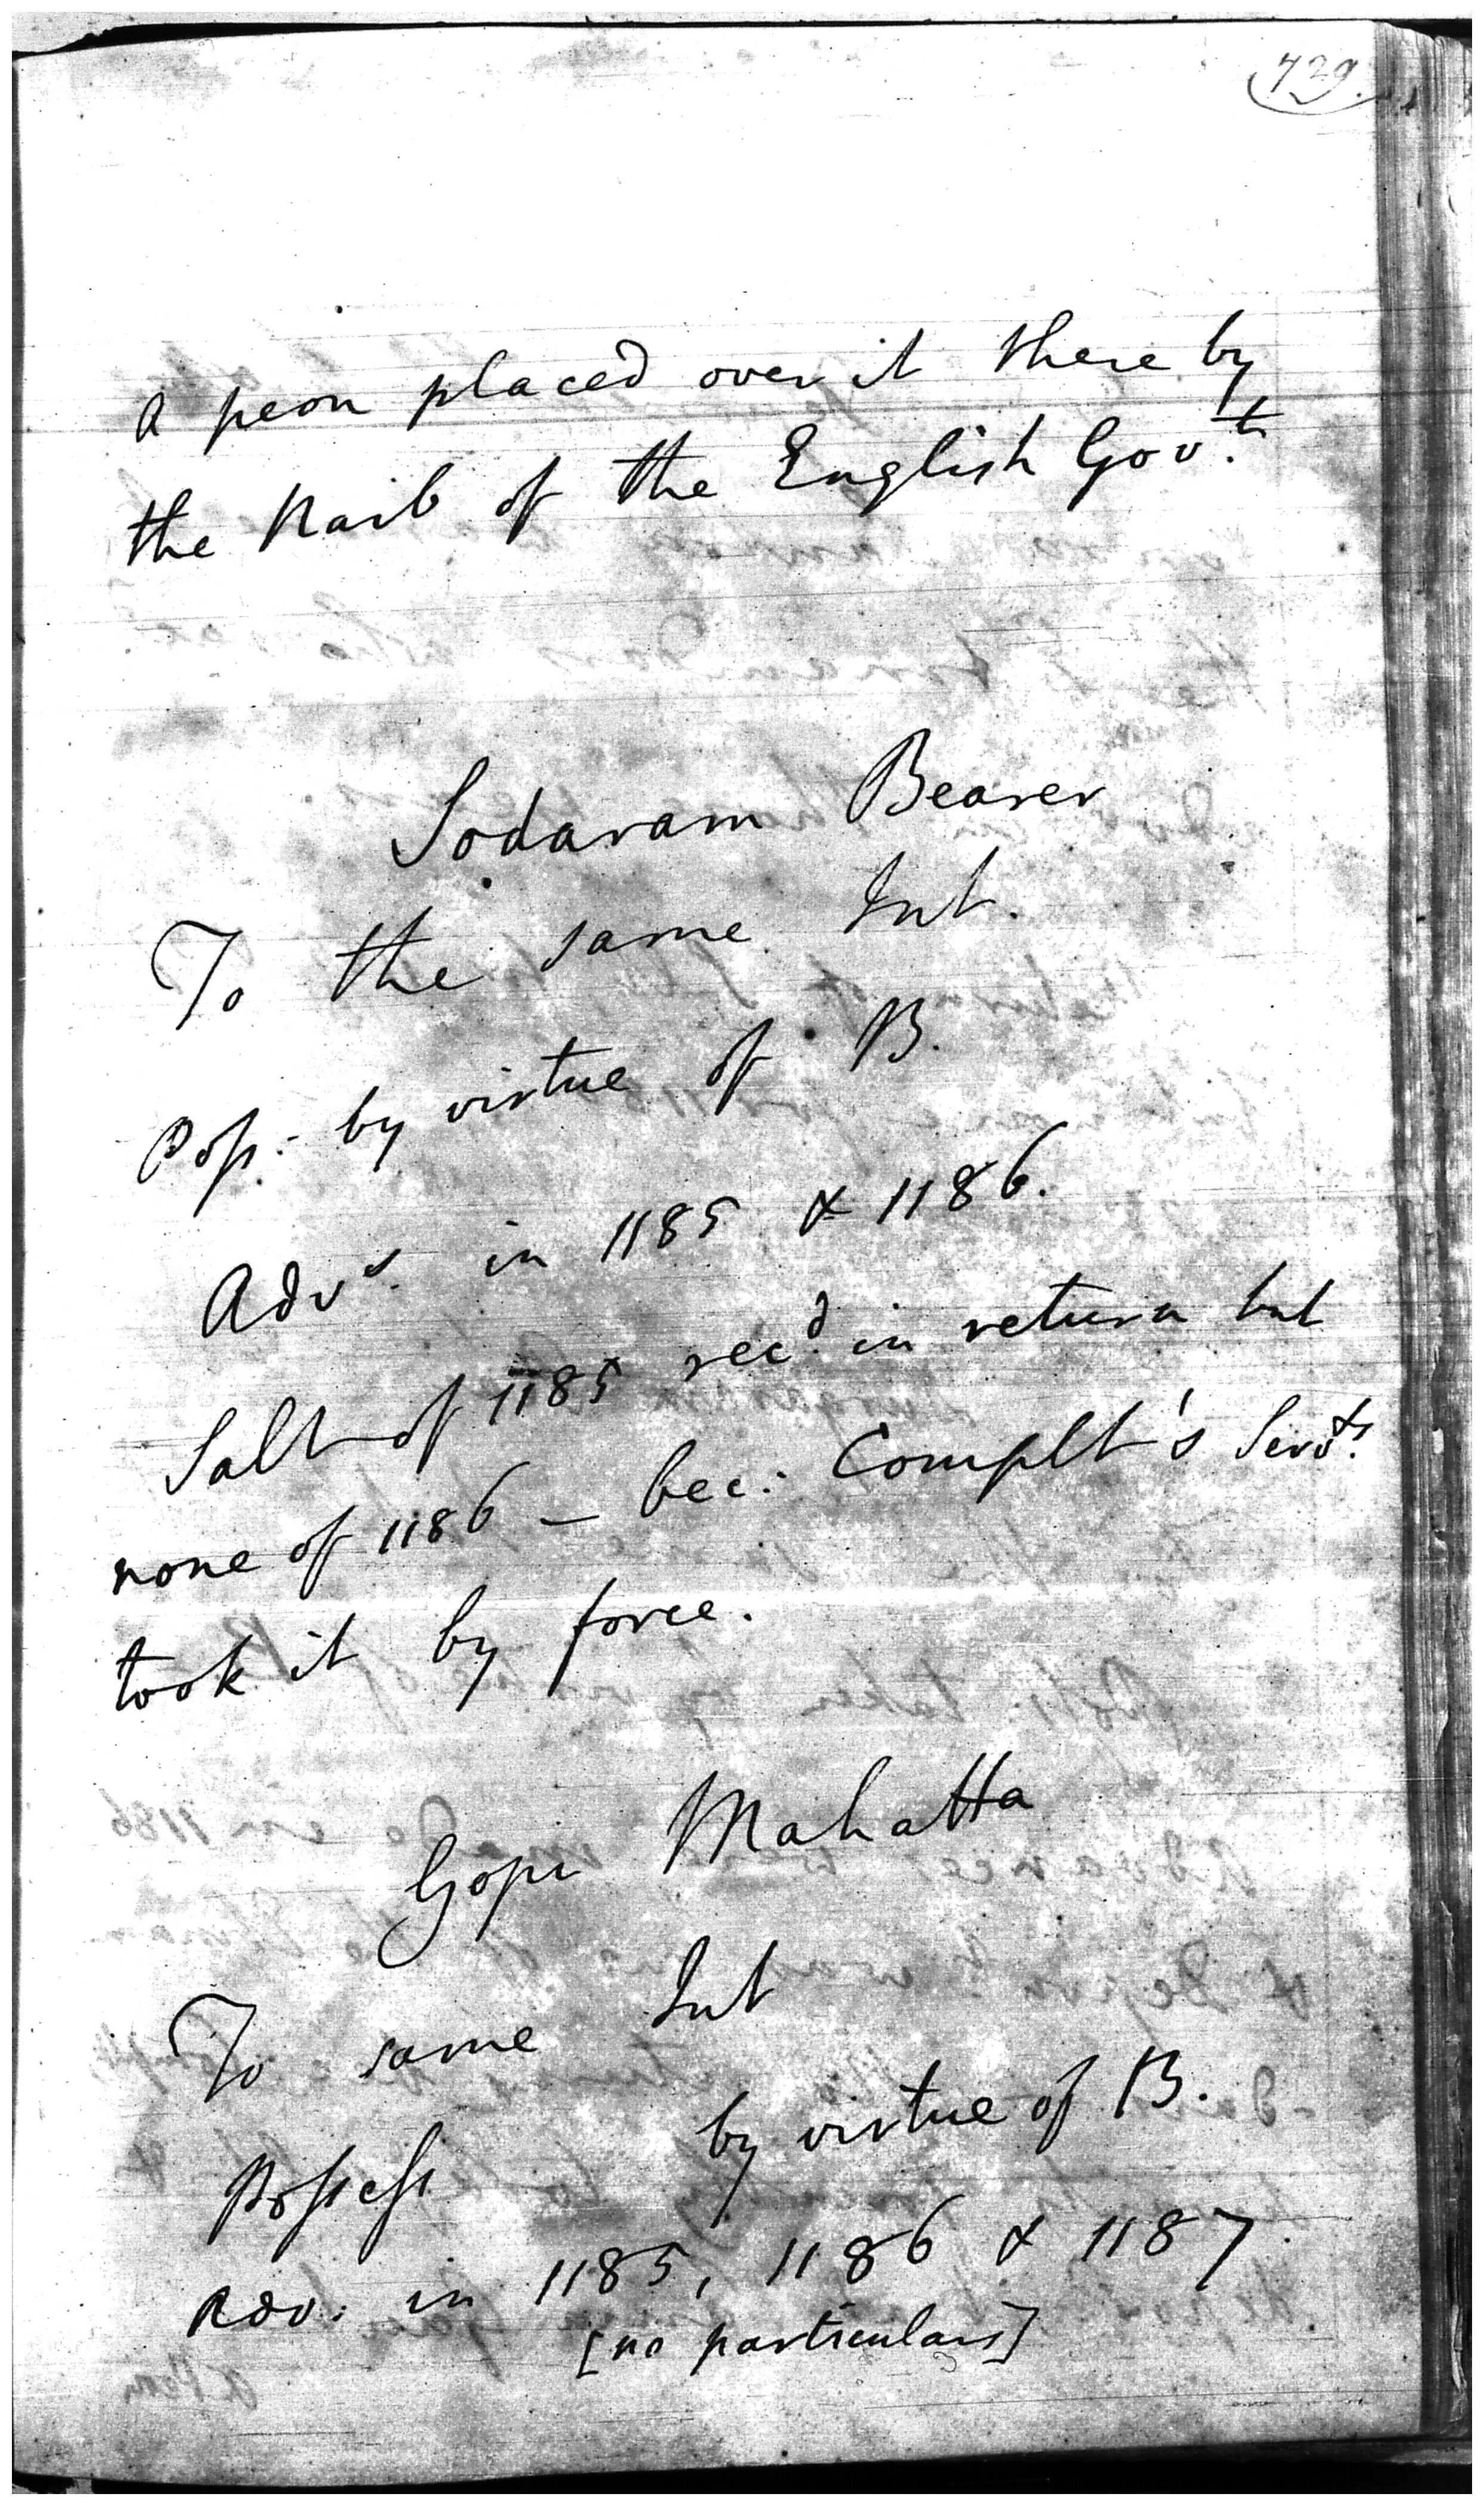 729.
a peon placed over it there by
the Naib of the English Gov.t
Sodaram Bearer
To the same Int.
Poss: by virtue of B.
Advs. in 1185 & 1186.
Salt of 1185 recd. in return but
none of 1186 – bec: Complt's Servts.
took it by force.
Gopi Mahatta
To same Int
Possess by virtue of B.
Adv: in 1185, 1186 & 1187
[no particulars]